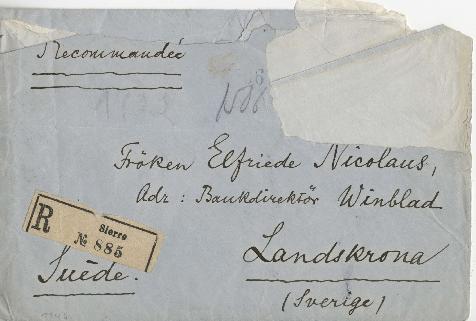 Recommandée
Fröken Elfriede Nicolaus,
Adr : Bankdirektör Winblad
R
Sierre
№ 885
Landskrona
Suède.
(Sverige)